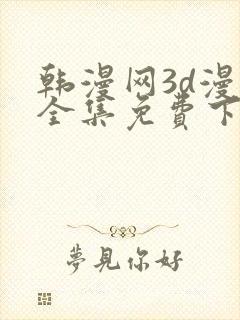 韩漫网3d漫
全集免費下
夢見你好